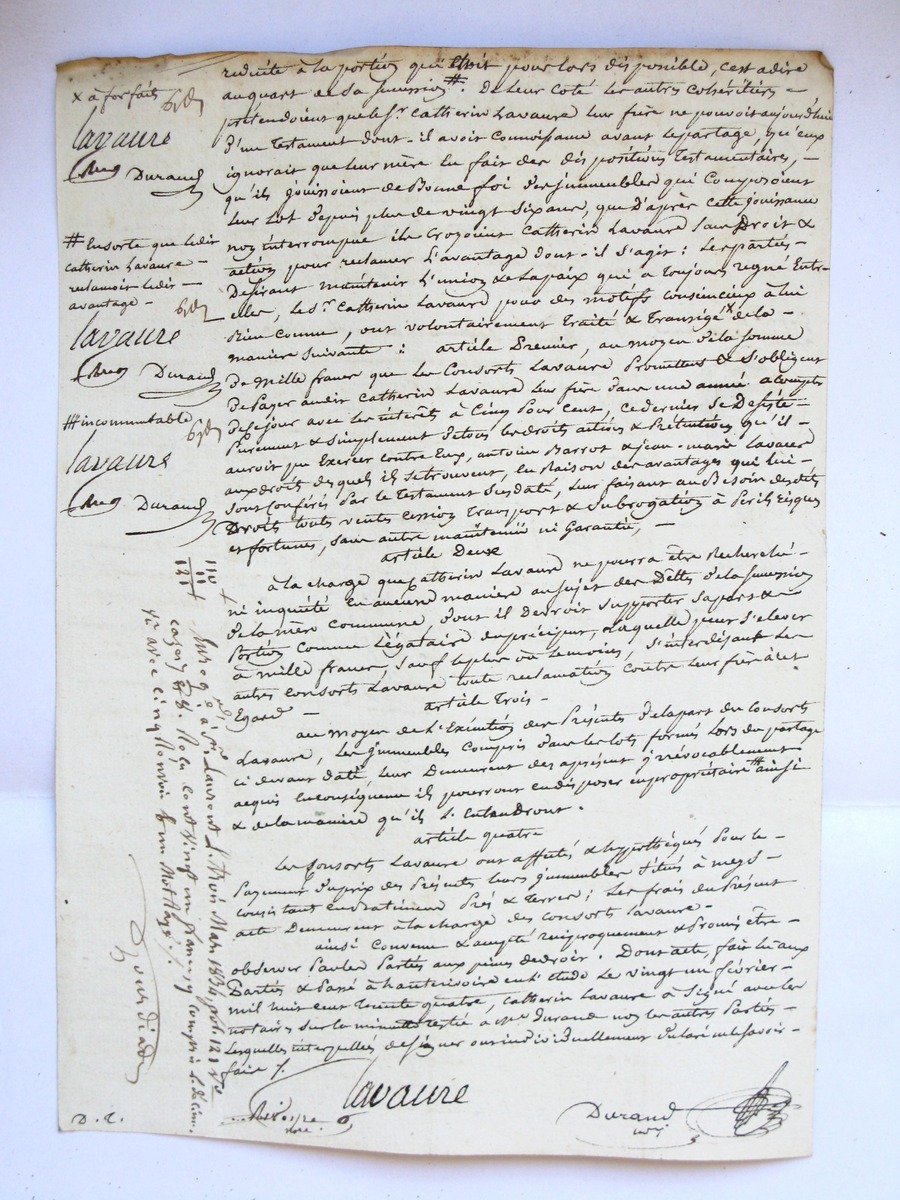 reduite à la portion qui était pour lors disponible, c'est adire
au quart de sa succession #. De leur coté les autres cohéritiers
prétendoient que le Sr. Catherin Lavaure leur frère ne pouvoit aujourd'hui
d'un Testament dont il avoit connoissance avant le partage, qu'eux
ignorait que leur mère eu fait des dispositions Testamentaires,
qu'ils jouissoient de Bonne foi des jmmeubles qui Composoient
leur lot depuis plus de vingt six ans, que d'après cette jouissance
non interrompue ils croyoient Catherin Lavaure sans Droit &
action pour reclamer l'avantage dont il s'agit : les parties
Desirant maintenir l'union & la paix qui a toujours regné Entr-
elles, le Sr. Catherin Lavaure pour des motifs consciencieux à lui
Bien connus, ont volontairement Traité & Transigé x de la
maniere suivante : article Premier, au moyen de la somme
de Mille francs que les Consorts Lavaure Promettent & s'obligent
de Payer audit Catherin Lavaure leur frère dans une année a compter
de ce jour avec les intérêts à Cinq Pour cent, ce dernier se Desiste
Purement & simplement de tous les droits actions & Prétentions qu'il
auroit pu Exercer contre Eux, antoine Barrot & jean-marie Lavaure
aux droits desquels ils se trouvent, en Raison des avantages qui lui
sont conférés Par le Testament susdaté, leur faisant au Besoin desdits
Droits toutes ventes cession Transport & subrogation à Perils Risques
et fortunes, sans autre maintenue ni Garantie,
article Deux
à la charge que Catherin Lavaure ne pourra être Recherché
ni inquiété En aucune manière au sujet des Dettes de la succession
de la mère Commune, dont il Devroit supporter sa part &
Portion Comme Légataire du préciput, laquelle peut s'elever
à mille francs, sauf le plus ou le moins, s'interdisant les
autres Consorts Lavaure toute reclamation contre leur frère à cet
Egard
article Trois
au moyen de l'Exécution des Présentes de la part des Consorts
Lavaure, les jmmeubles Compris dans les lots formés lors du partage
ci devant daté, leur Demeurent des apresent jrrévocablement
acquis En conséquence ils pourront en disposer en propriétaire ## ainsi
& de la maniere qu'ils l'Entendront.
article quatre
les Consorts Lavaure ont affectés & hypothéqués Pour le
Payement du prix des Présentes leurs jmmeubles situés à
consistant en Batiments Prés & Terres ; les frais du Présent
acte Demeurent à la charge des consorts Lavaure
ainsi Convenu & accepté réciproquement & Promis être
observer Par les Parties aux peines de droit. Dont acte, fait lu aux
Parties & Passé à hauterivoire en l'étude le vingt un février
mil huit cent Trente quatre, Catherin Lavaure a signé avec les
notaires sur la minutte restée à Me Durand non les autres Parties
lesquelles interpellées de signer ont individuellement déclaré ne le savoir
faire /.
Lavaure
Durand
D. E.
x à forfait
Lavaure
Durand
# Ensorte que ledit
Catherin Lavaure
reclamoit ledit
avantage
Lavaure
Durand
## incommutable
Lavaure
Durand
110
11
121
Enregé à St Laurent le Trois Mars 1834